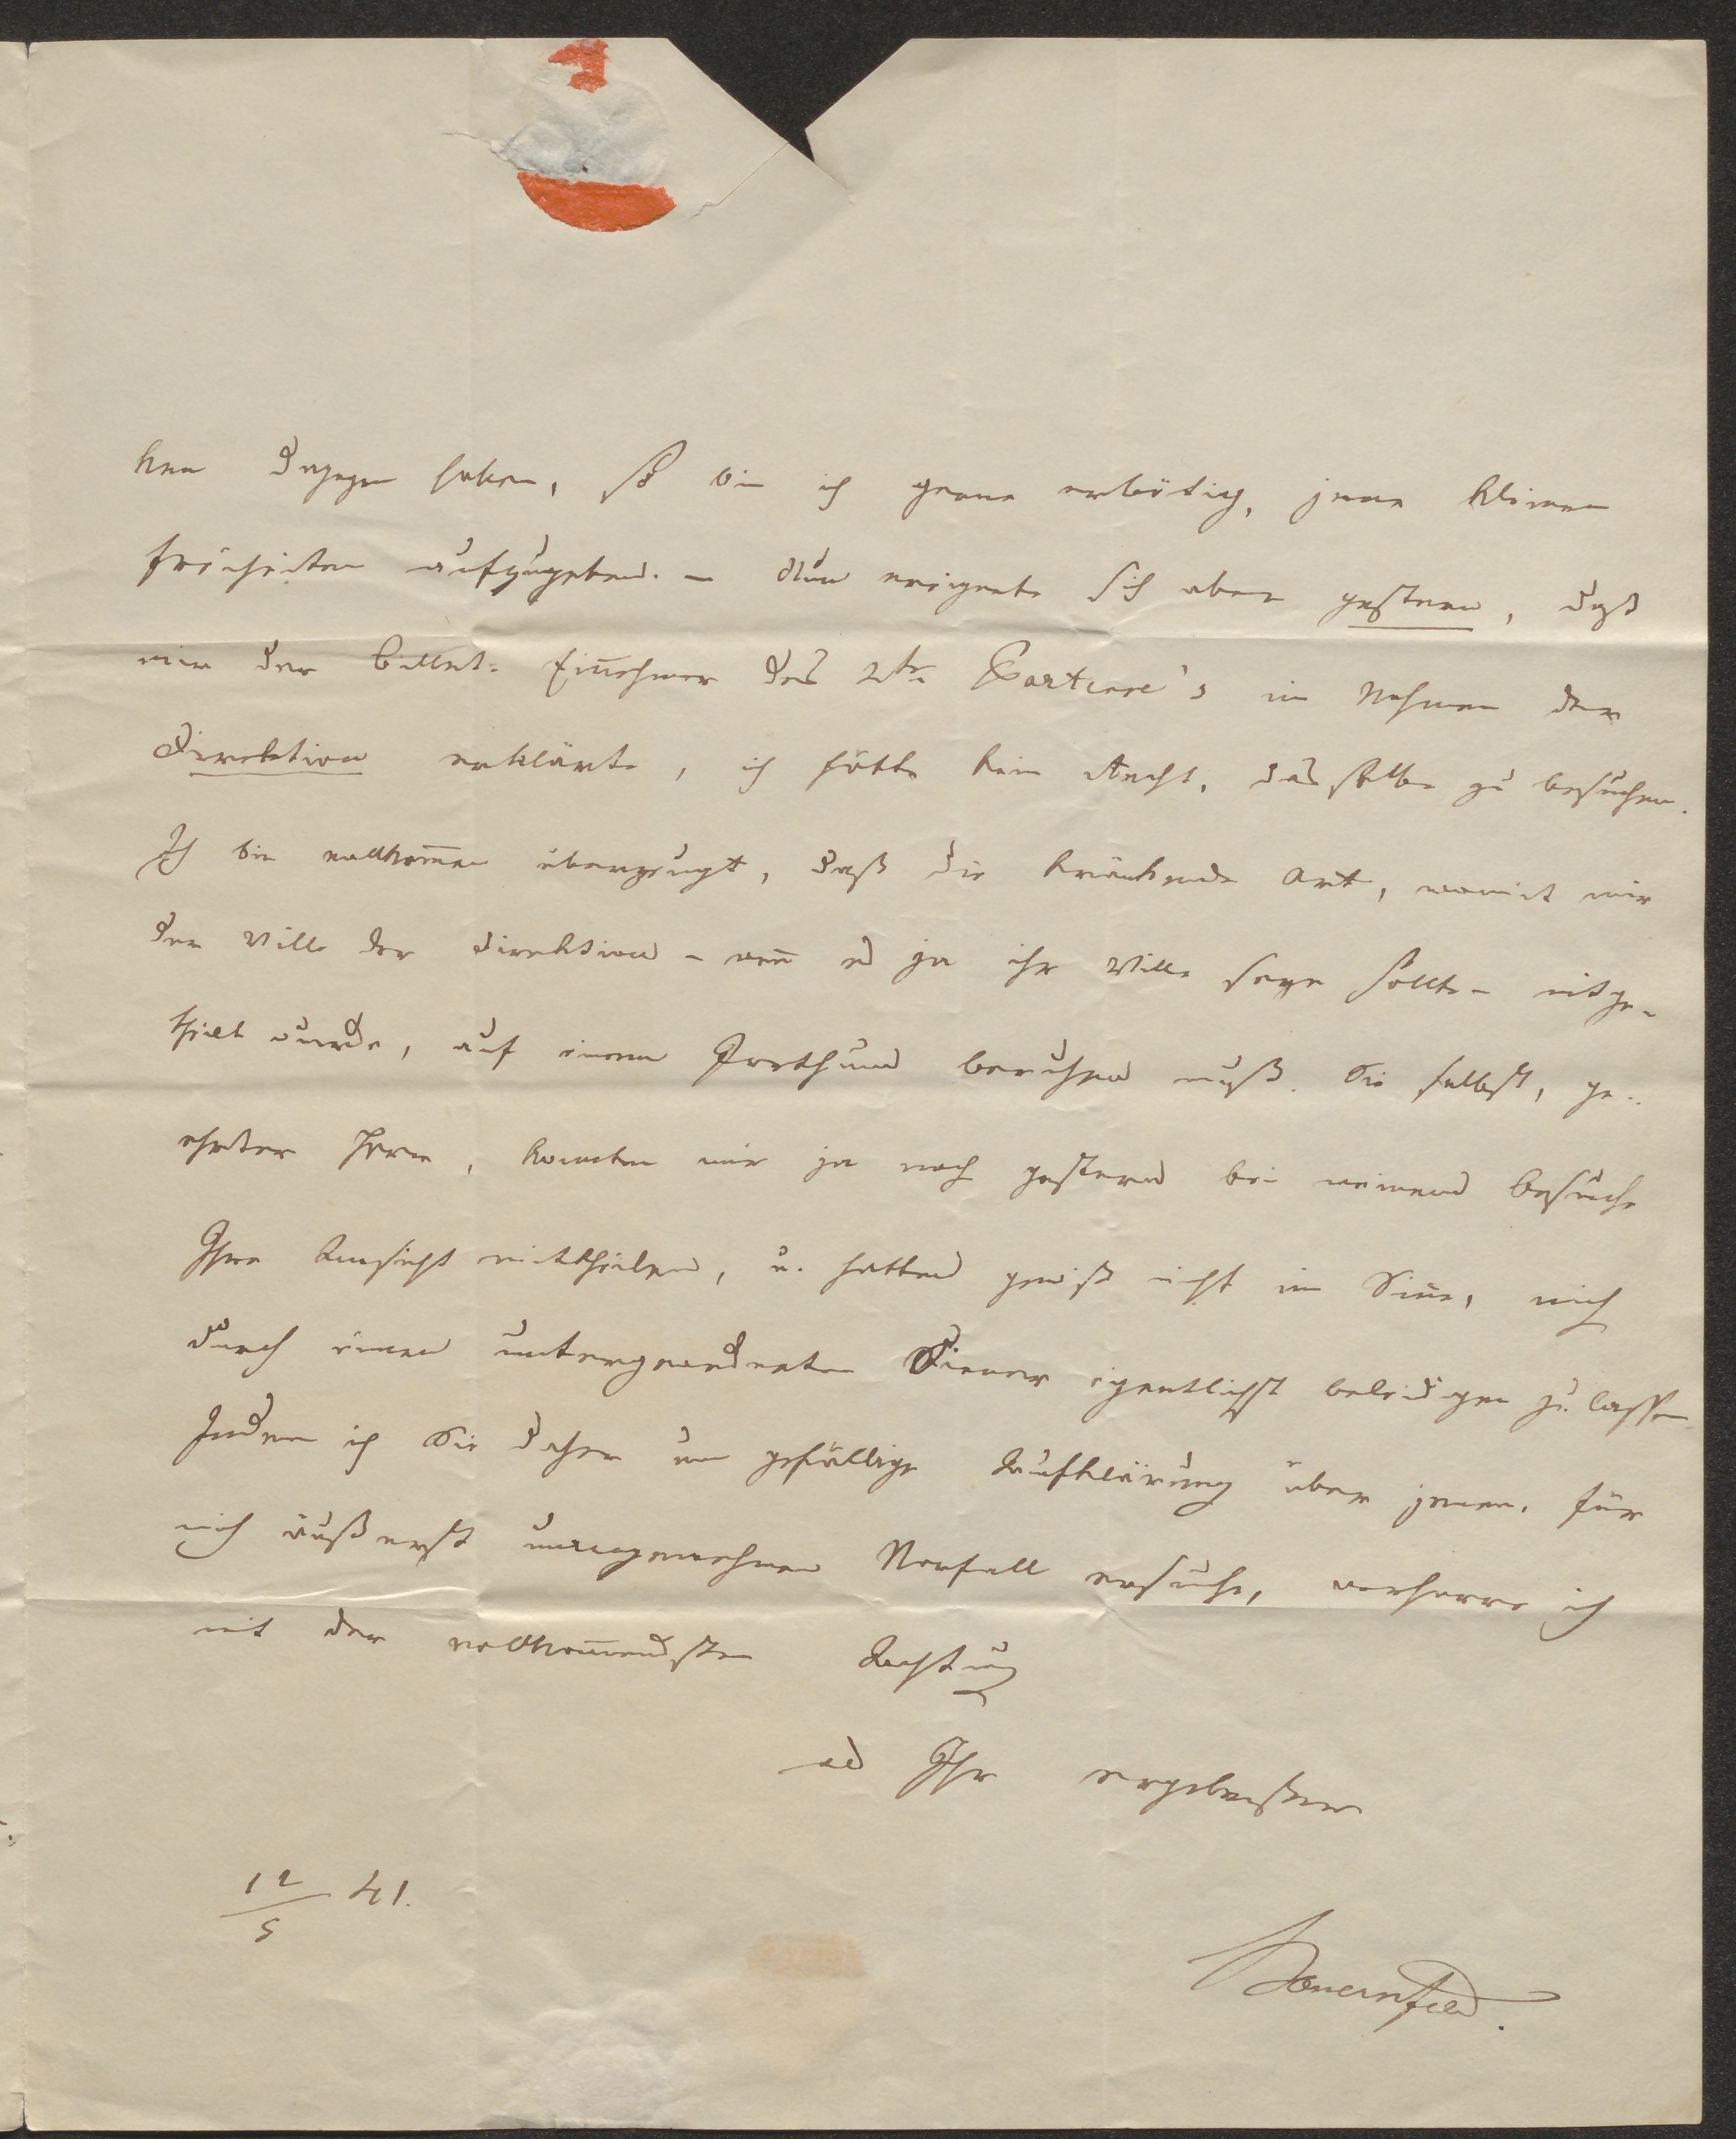 ken dagegen haben, so bin ich gerne erbötig, jene kleinen
Freiheiten aufzugeben. – Nun ereignete sich aber gestern, daß
mir der Billet-Einnehmer des 2ten Parterre's im Nahmen der
Direktion erklärte, ich hätte kein Recht, dasselbe zu besuchen.
Ich bin vollkom̄en überzeugt, daß die kränkende Art, womit mir
der Wille der Direktion – wen̄ es ja ihr Wille seyn sollte – mitge-
theilt wurde, auf einem Irrthum beruhen muß. Sie selbst, ge-
ehrter Herr, konnten mir ja noch gestern bei meinem Besuche
Ihre Ansicht mittheilen, u. hatten gewiß nicht im Sin̄e, mich
durch einen untergeordneten Diener eigentlichst beleidigen zu lassen.
Indem ich Sie daher um gefällige Aufklärung über jenen, für
mich äußerst unangenehmen Vorfall ersuche, verharre ich
mit der vollkom̄ensten Achtung
als Ihr ergebenster
12/5 41.
Bauernfeld.